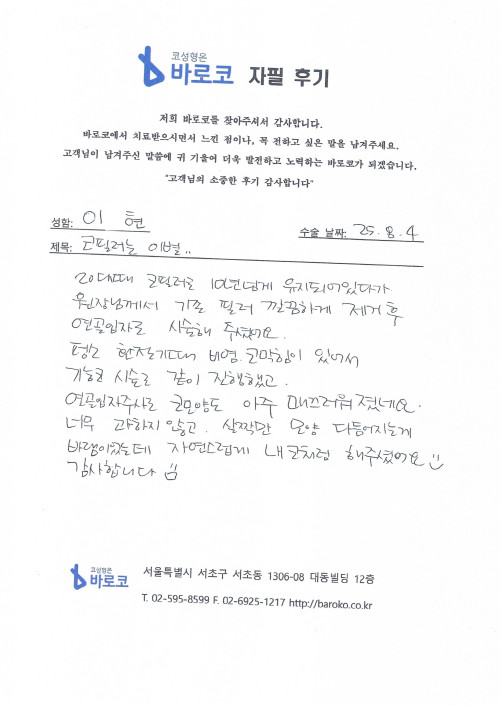 코성형은
바로코 자필 후기
저희 바로코를 찾아주셔서 감사합니다.
바로코에서 치료받으시면서 느낀 점이나, 꼭 전하고 싶은 말을 남겨주세요.
고객님이 남겨주신 말씀에 귀 기울여 더욱 발전하고 노력하는 바로코가 되겠습니다.
"고객님의 소중한 후기 감사합니다"
성함: 이 현 수술 날짜: 25. 8. 4
제목: 코필러는 이별..
20대때 코필러로 10년넘게 유지되어있다가
원장님께서 기존 필러 깔끔하게 제거 후
연골입자로 시술해 주셨어요.
평소 환절기때 비염. 코막힘이 있어서
기능코 시술로 같이 진행했고.
연골입자주사로 코모양도 아주 매끄러워 졌네요.
너무 과하지 않고. 살짝만 모양 다듬어지는게
바램이었는데 자연스럽게 내 코처럼 해주셨어요
감사합니다
코성형은
바로코 서울특별시 서초구 서초동 1306-08 대동빌딩 12층
T. 02-595-8599 F. 02-6925-1217 http://baroko.co.kr